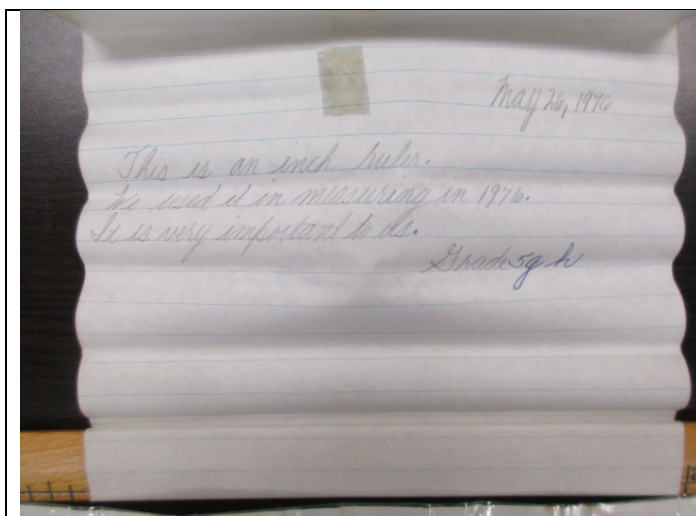 May 26, 1976
This is an inch ruler.
We used it in measuring in 1976.
It is very important to us.
Grade 5g h